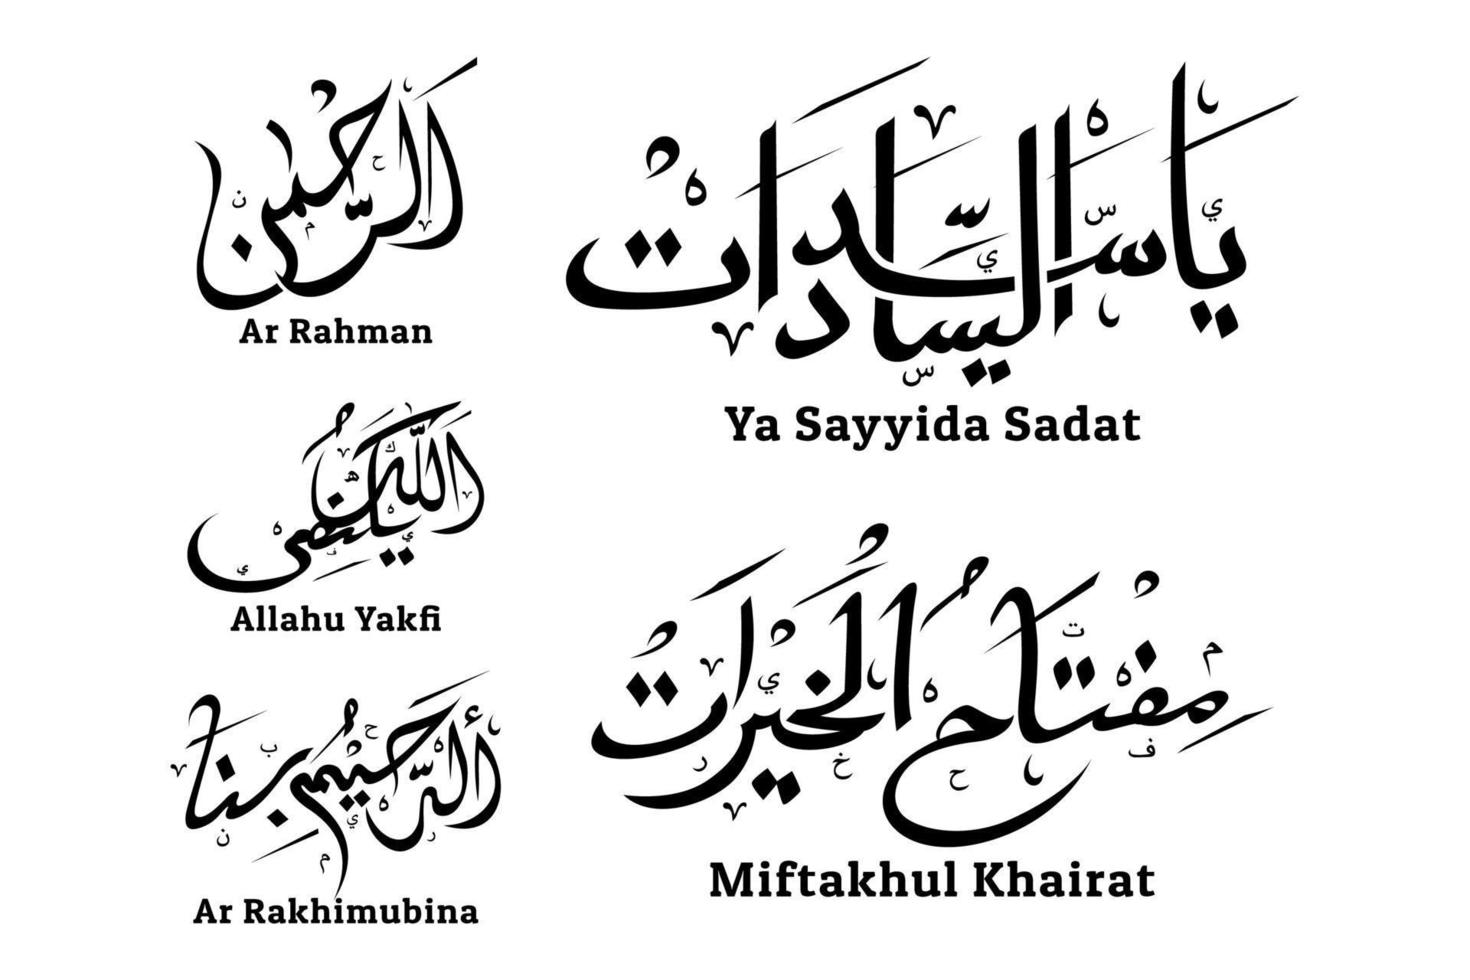 الرحمن
Ar Rahman
الله يكفي
Allahu Yakfi
ألرحيم بنا
Ar Rakhimubina
يا سيد السادات
Ya Sayyida Sadat
مفتاح الخيرات
Miftakhul Khairat